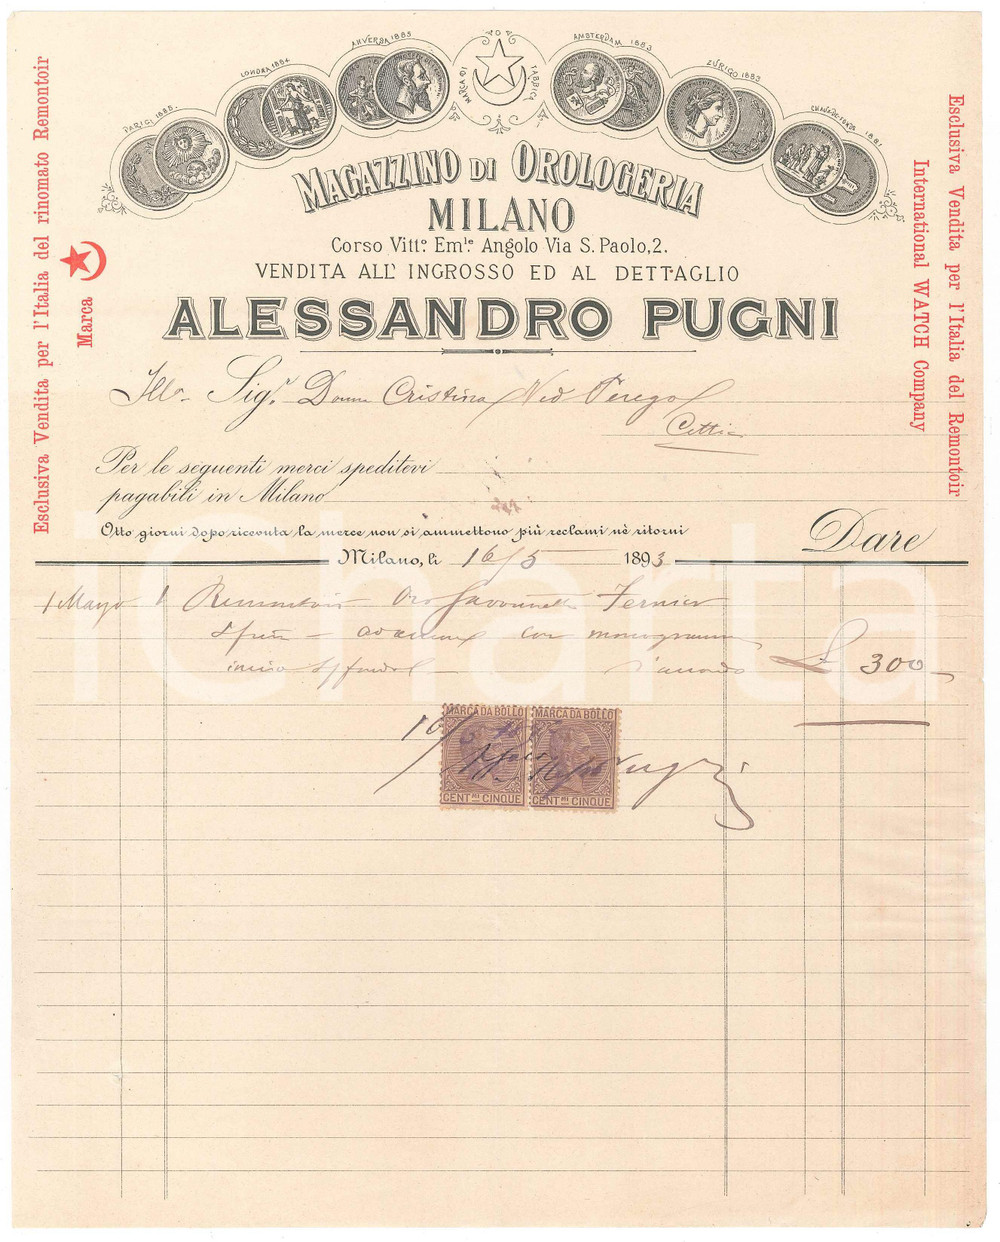 PARIGI 1885.
LONDRA 1884
ANVERSA 1885
MARCA DI FABBRICA
AMSTERDAM 1883
ZURIGO 1883
CHAUX-DE-FONDS 1881
MAGAZZINO DI OROLOGERIA
MILANO
Corso Vitt.º Em.le Angolo Via S. Paolo, 2.
VENDITA ALL' INGROSSO ED AL DETTAGLIO
ALESSANDRO PUGNI
Esclusiva Vendita per l'Italia del rinomato Remontoir
Marca
Esclusiva Vendita per l'Italia del Remontoir
International WATCH Company
Ill.ª Sig.ª Donna Cristina Ved Perego
Per le seguenti merci speditevi
pagabili in Milano
Otto giorni dopo ricevuta la merce non si ammettono più reclami nè ritorni
Dare
Milano, li 16/5 1893
1 Marzo 1 Remontoir Oro Savonnette
con monogramma
£ 300
MARCA DA BOLLO MARCA DA BOLLO
16/5
Pugni
CENT.MI CINQUE CENT.MI CINQUE
iCharta